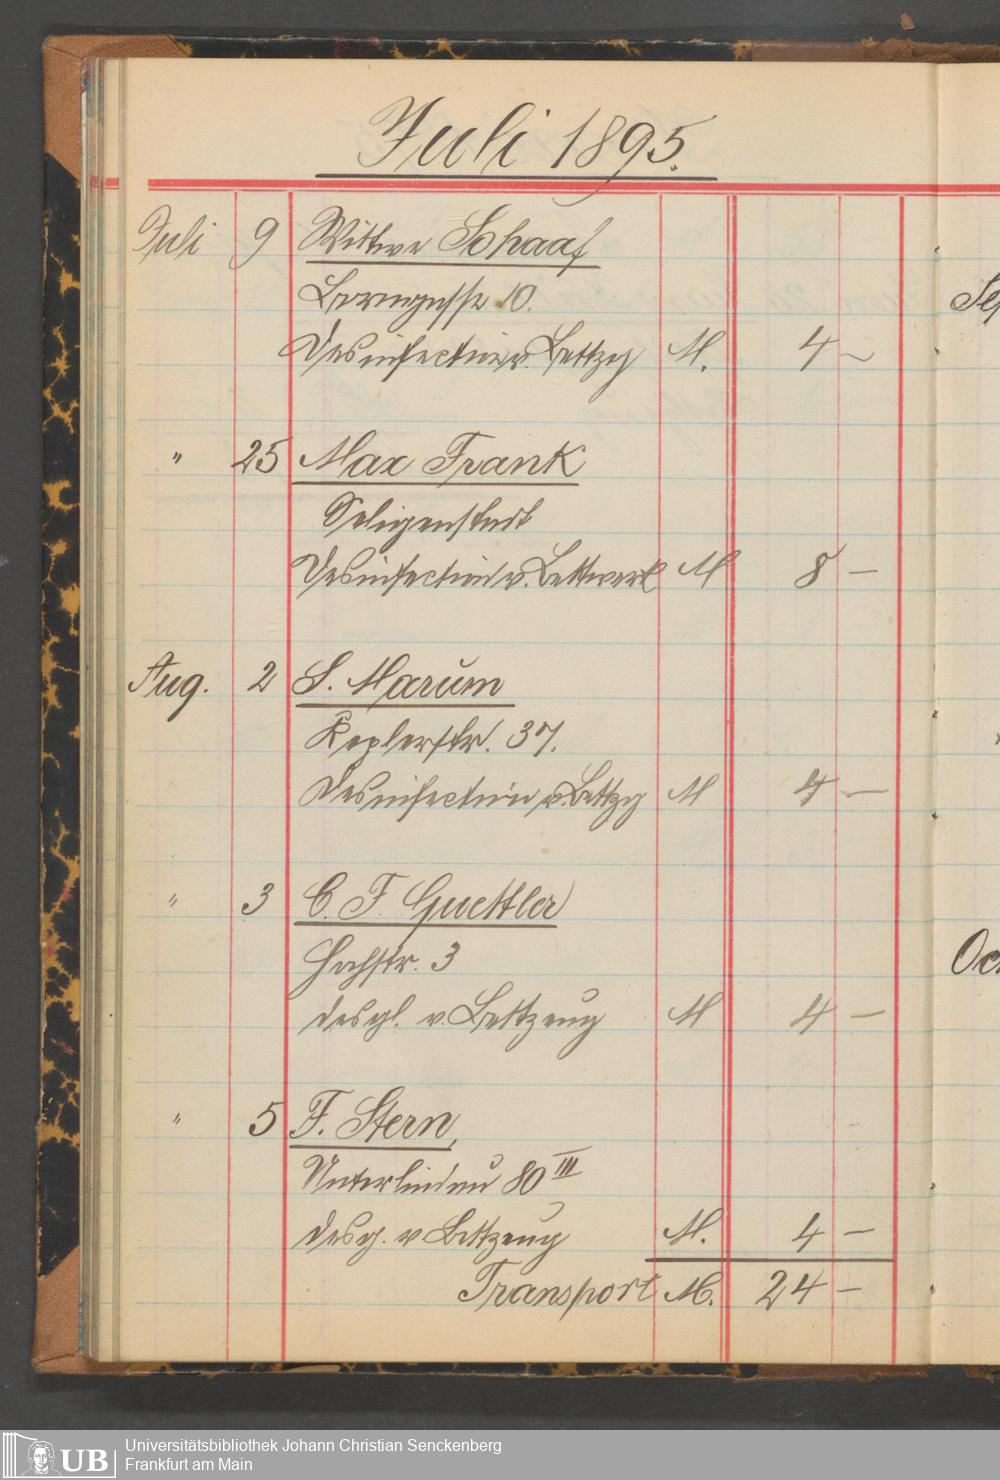 Juli 1895.
Juli 9 Wittwe Schaaf
Borngasse 10.
Desinfection v. Bettzg M. 4 —
" 25 Max Frank
Seligenstadt
Desinfection v. Bettwerk M 8 —
Aug. 2 S. Marum
Keplerstr. 37.
Desinfection v. Bettzg M 4 —
" 3 C. F. Guettler
Hochstr. 3
desgl. v. Bettzeug M 4 —
" 5 F. Stern,
Unterlindau 80 III
desgl. v Bettzeug M. 4 —
Transport M. 24 —
Oc
UB
Universitätsbibliothek Johann Christian Senckenberg
Frankfurt am Main